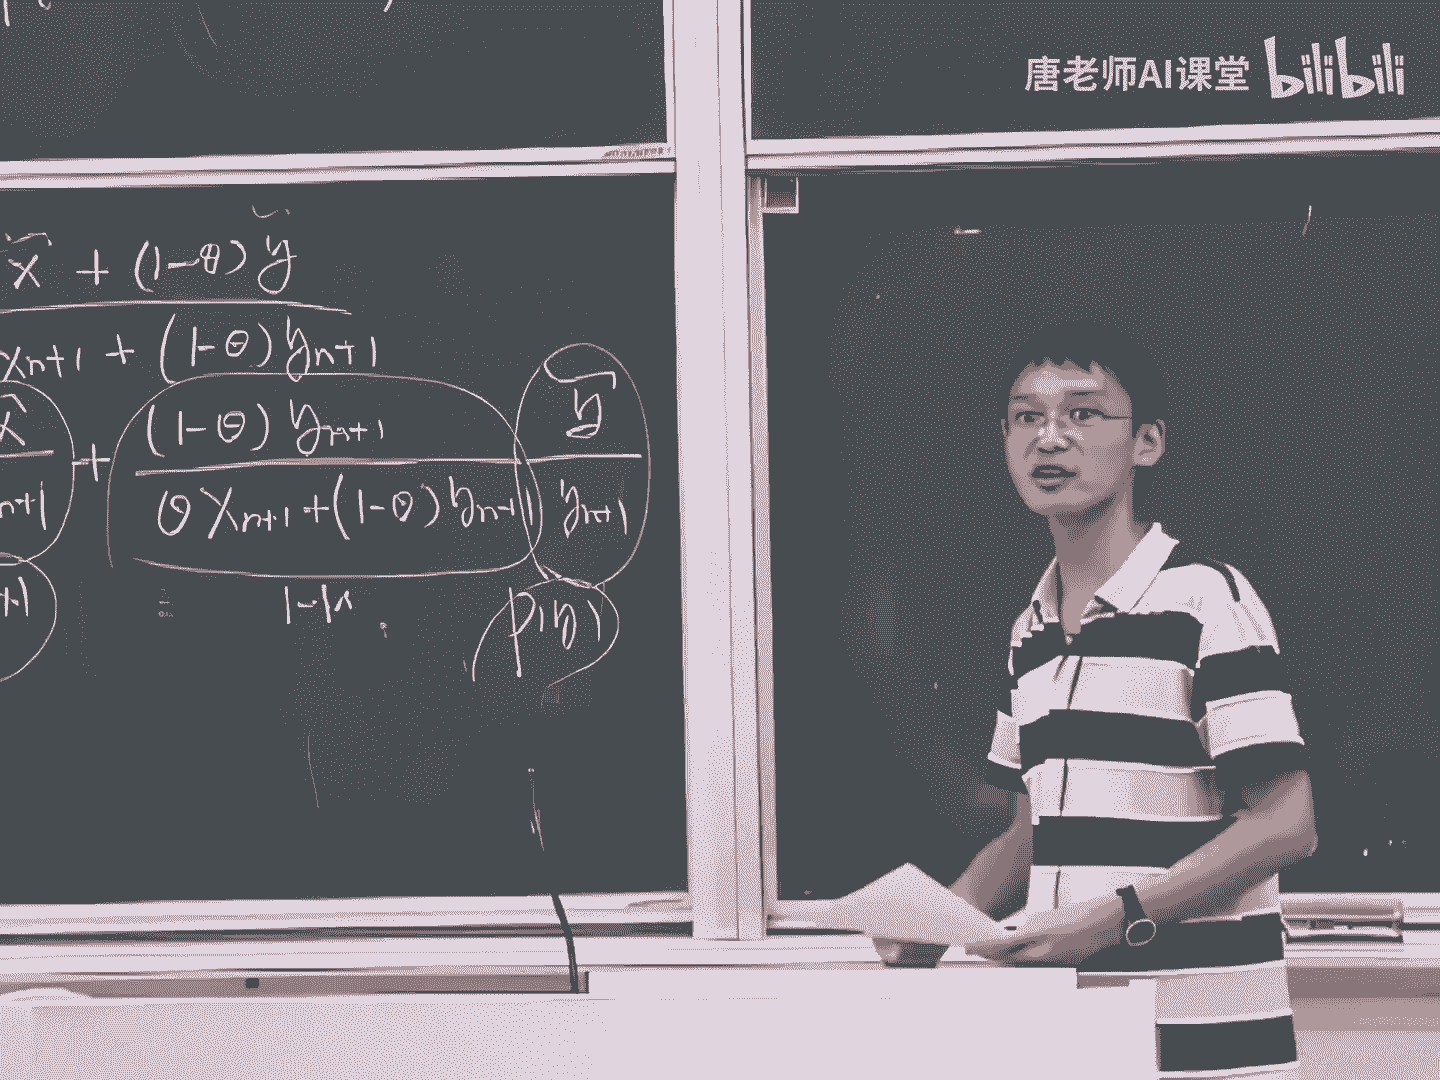 唐老师AI课堂 bilibili
x̃ + (1-θ) ỹ
xn+1 + (1-θ) yn+1
x̃ + (1-θ) yn+1 ỹ
n+1 θ xn+1 + (1-θ) yn+1 yn+1
+1 1-μ P(y)